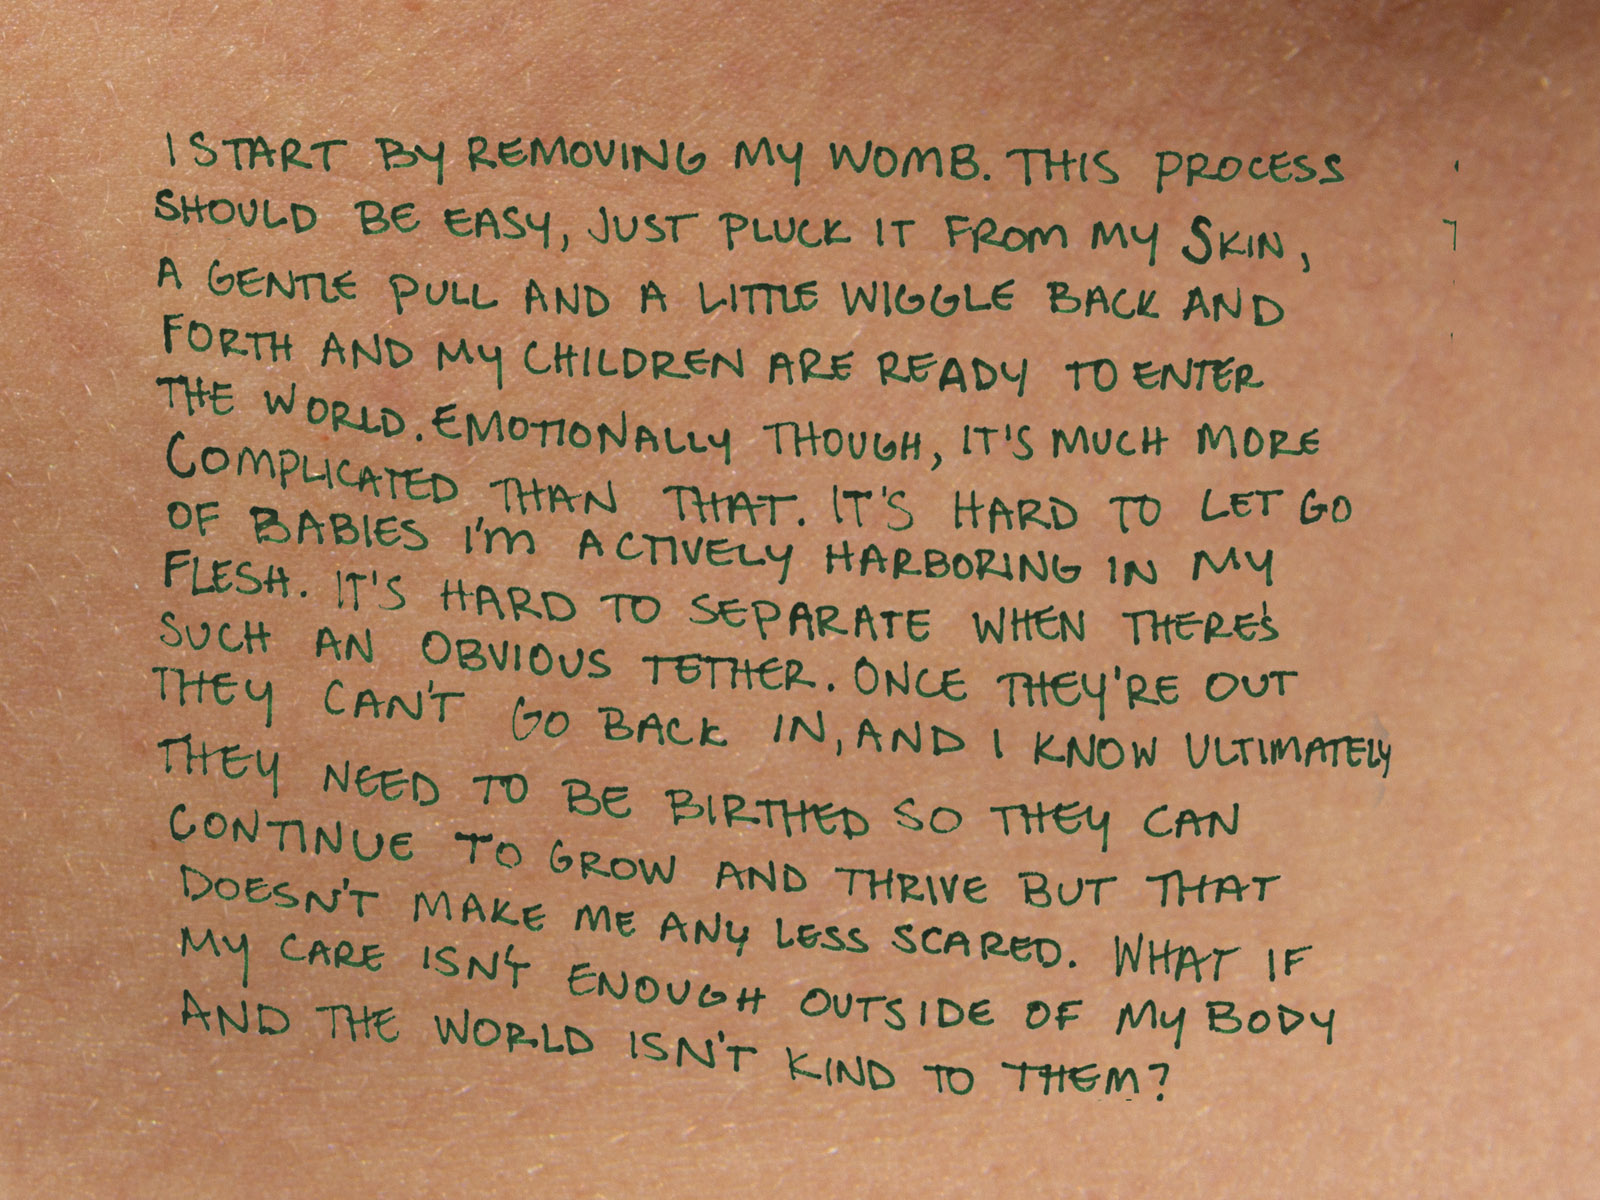 I START BY REMOVING MY WOMB. THIS PROCESS
SHOULD BE EASY, JUST PLUCK IT FROM MY SKIN,
A GENTLE PULL AND A LITTLE WIGGLE BACK AND
FORTH AND MY CHILDREN ARE READY TO ENTER
THE WORLD. EMOTIONALLY THOUGH, IT'S MUCH MORE
COMPLICATED THAN THAT. IT'S HARD TO LET GO
OF BABIES I'M ACTIVELY HARBORING IN MY
FLESH. IT'S HARD TO SEPARATE WHEN THERE'S
SUCH AN OBVIOUS TETHER. ONCE THEY'RE OUT
THEY CAN'T GO BACK IN, AND I KNOW ULTIMATELY
THEY NEED TO BE BIRTHED SO THEY CAN
CONTINUE TO GROW AND THRIVE BUT THAT
DOESN'T MAKE ME ANY LESS SCARED. WHAT IF
MY CARE ISN'T ENOUGH OUTSIDE OF MY BODY
AND THE WORLD ISN'T KIND TO THEM?